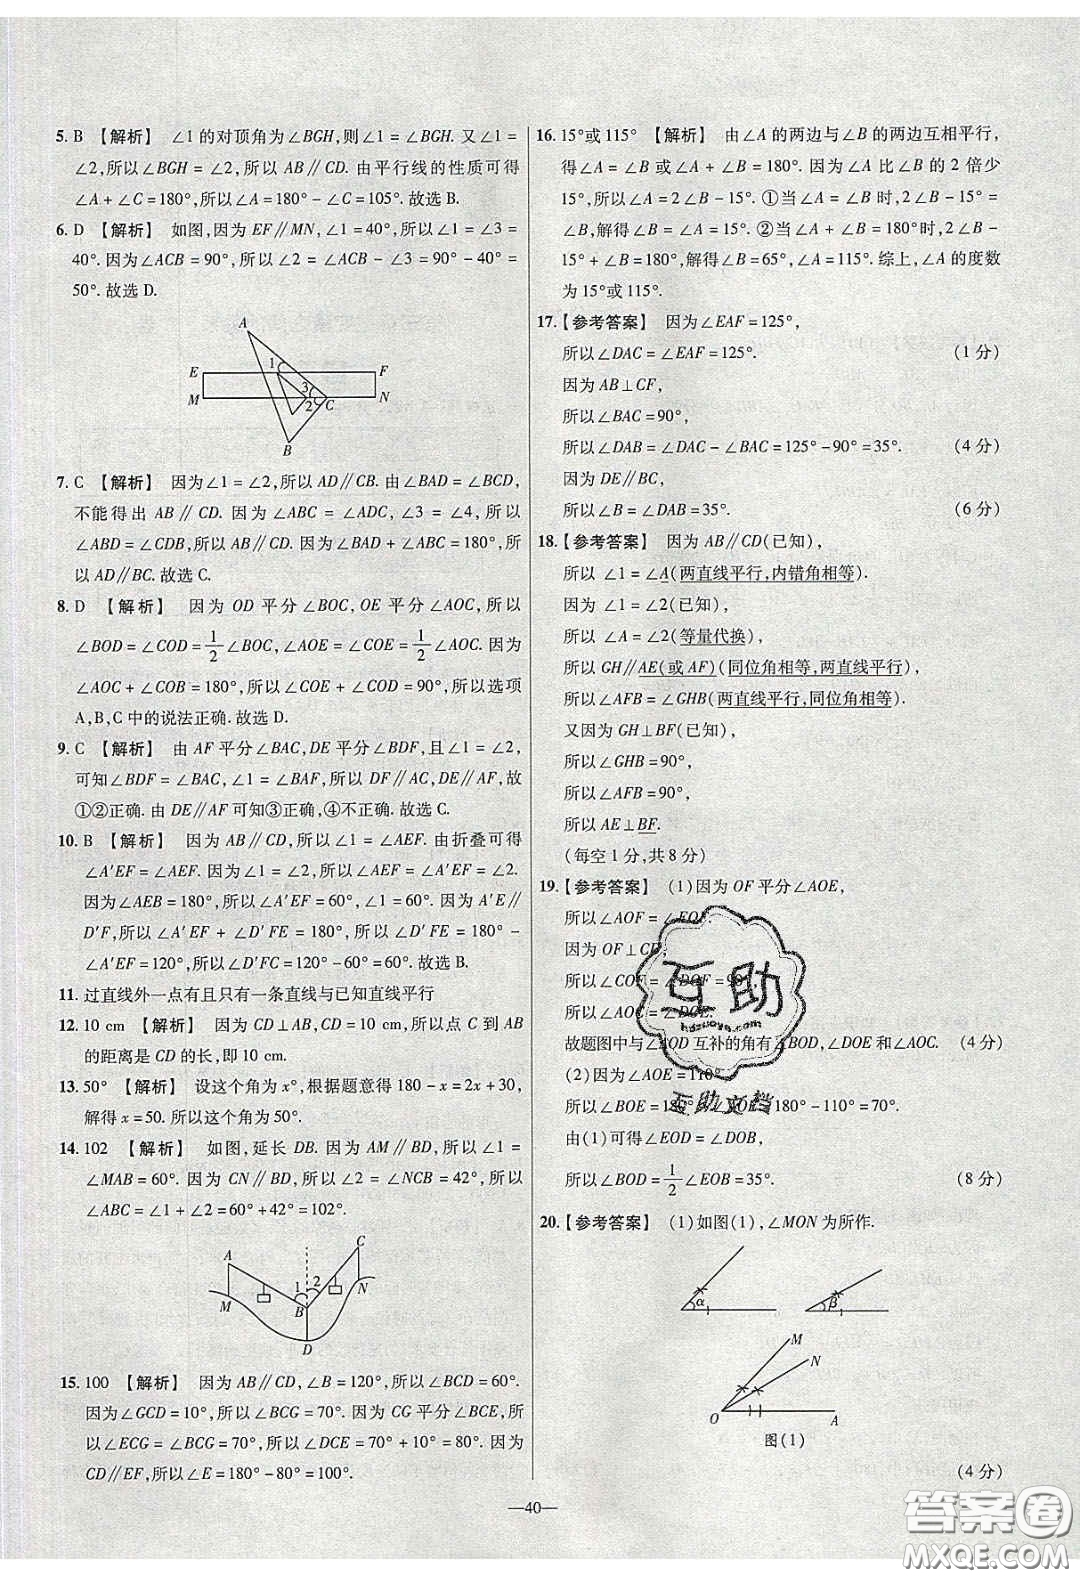 5. B 【解析】 ∠1的对顶角为∠BGH,则∠1=∠BGH. 又∠1=
∠2,所以∠BGH=∠2,所以AB∥CD. 由平行线的性质可得
∠A+∠C=180°,所以∠A=180°-∠C=105°. 故选B.
6. D 【解析】 如图,因为EF∥MN,∠1=40°,所以∠1=∠3=
40°. 因为∠ACB=90°,所以∠2=∠ACB-∠3=90°-40°=
50°. 故选D.
A
E 1 F
M 3 N
2 C
B
7. C 【解析】 因为∠1=∠2,所以AD∥CB. 由∠BAD=∠BCD,
不能得出AB∥CD. 因为∠ABC=∠ADC,∠3=∠4,所以
∠ABD=∠CDB,所以AB∥CD. 因为∠BAD+∠ABC=180°,所
以AD∥BC. 故选C.
8. D 【解析】 因为OD平分∠BOC,OE平分∠AOC,所以
∠BOD=∠COD=1/2∠BOC,∠AOE=∠COE=1/2∠AOC. 因为
∠AOC+∠COB=180°,所以∠COE+∠COD=90°,所以选项
A,B,C中的说法正确. 故选D.
9. C 【解析】 由AF平分∠BAC,DE平分∠BDF,且∠1=∠2,
可知∠BDF=∠BAC,∠1=∠BAF,所以DF∥AC,DE∥AF,故
①②正确. 由DE∥AF可知③正确,④不正确. 故选C.
10. B 【解析】 因为AB∥CD,所以∠1=∠AEF. 由折叠可得
∠A′EF=∠AEF. 因为∠1=2∠2,所以∠A′EF=∠AEF=2∠2.
因为∠AEB=180°,所以∠A′EF=60°,∠1=60°. 因为A′E∥
D′F,所以∠A′EF+∠D′FE=180°,所以∠D′FE=180°-
∠A′EF=120°,所以∠D′FC=120°-60°=60°. 故选B.
11. 过直线外一点有且只有一条直线与已知直线平行
12. 10 cm 【解析】 因为CD⊥AB,CD=10 cm,所以点C到AB
的距离是CD的长,即10 cm.
13. 50° 【解析】 设这个角为x°,根据题意得180-x=2x+30,
解得x=50. 所以这个角为50°.
14. 102 【解析】 如图,延长DB. 因为AM∥BD,所以∠1=
∠MAB=60°. 因为CN∥BD,所以∠2=∠NCB=42°,所以
∠ABC=∠1+∠2=60°+42°=102°.
A C
1 2
M B N
D
15. 100 【解析】 因为AB∥CD,∠B=120°,所以∠BCD=60°.
因为∠GCD=10°,所以∠BCG=70°. 因为CG平分∠BCE,所
以∠ECG=∠BCG=70°,所以∠DCE=70°+10°=80°. 因为
CD∥EF,所以∠E=180°-80°=100°.
16. 15°或115° 【解析】 由∠A的两边与∠B的两边互相平行,
得∠A=∠B或∠A+∠B=180°. 因为∠A比∠B的2倍少
15°,所以∠A=2∠B-15°. ①当∠A=∠B时,2∠B-15°=
∠B,解得∠B=∠A=15°. ②当∠A+∠B=180°时,2∠B-
15°+∠B=180°,解得∠B=65°,∠A=115°. 综上,∠A的度数
为15°或115°.
17.【参考答案】 因为∠EAF=125°,
所以∠DAC=∠EAF=125°. (1分)
因为AB⊥CF,
所以∠BAC=90°,
所以∠DAB=∠DAC-∠BAC=125°-90°=35°. (4分)
因为DE∥BC,
所以∠B=∠DAB=35°. (6分)
18.【参考答案】 因为AB∥CD(已知),
所以∠1=∠A(两直线平行,内错角相等).
因为∠1=∠2(已知),
所以∠A=∠2(等量代换),
所以GH∥AE(或AF)(同位角相等,两直线平行),
所以∠AFB=∠GHB(两直线平行,同位角相等).
又因为GH⊥BF(已知),
所以∠GHB=90°,
所以∠AFB=90°,
所以AE⊥BF.
(每空1分,共8分)
19.【参考答案】 (1)因为OF平分∠AOE,
所以∠AOF=∠EOF.
因为OF⊥CD,
所以∠COF=∠DOF=90°,
所以∠AOC=∠DOE.
故题图中与∠AOD互补的角有∠BOD,∠DOE和∠AOC. (4分)
(2)因为∠AOE=110°,
所以∠BOE=180°-∠AOE=180°-110°=70°.
由(1)可得∠EOD=∠DOB,
所以∠BOD=1/2∠EOB=35°. (8分)
20.【参考答案】 (1)如图(1),∠MON为所作.
α β
M
N
O A
图(1)
(4分)
—40—
互助
hdzuoye.com
互助文档
答案圈
MXQE.COM